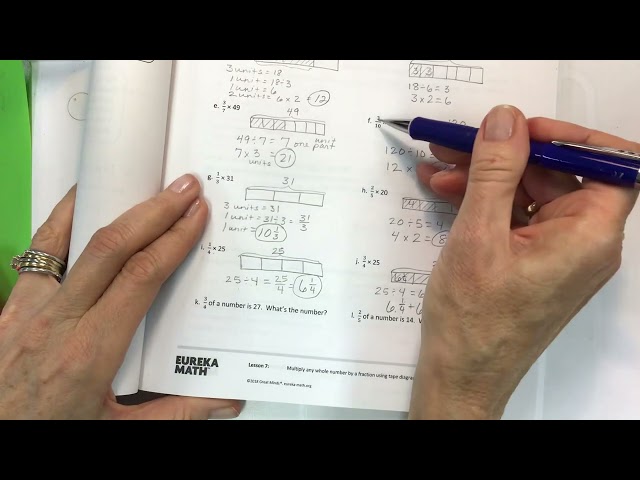 3 units = 18
1 unit = 18÷3
1 unit = 6
2 units = 6 × 2 = 12
3 3
18÷6 = 3
3 × 2 = 6
e. 3/7 × 49
49
49÷7 = 7 one unit part
7 × 3 = 21
units
f. 3/10
120
120÷10 =
12 ×
g. 1/3 × 31
31
3 units = 31
1 unit = 31÷3 = 31/3
1 unit = 10 1/3
h. 2/5 × 20
20÷5 = 4
4 × 2 = 8
i. 1/4 × 25
25
25÷4 = 25/4 = 6 1/4
j. 3/4 × 25
25
25÷4 = 6
6 1/4 + 6
k. 3/4 of a number is 27. What's the number?
l. 2/5 of a number is 14.
EUREKA MATH
Lesson 7: Multiply any whole number by a fraction using tape
©2018 Great Minds®. eureka-math.org